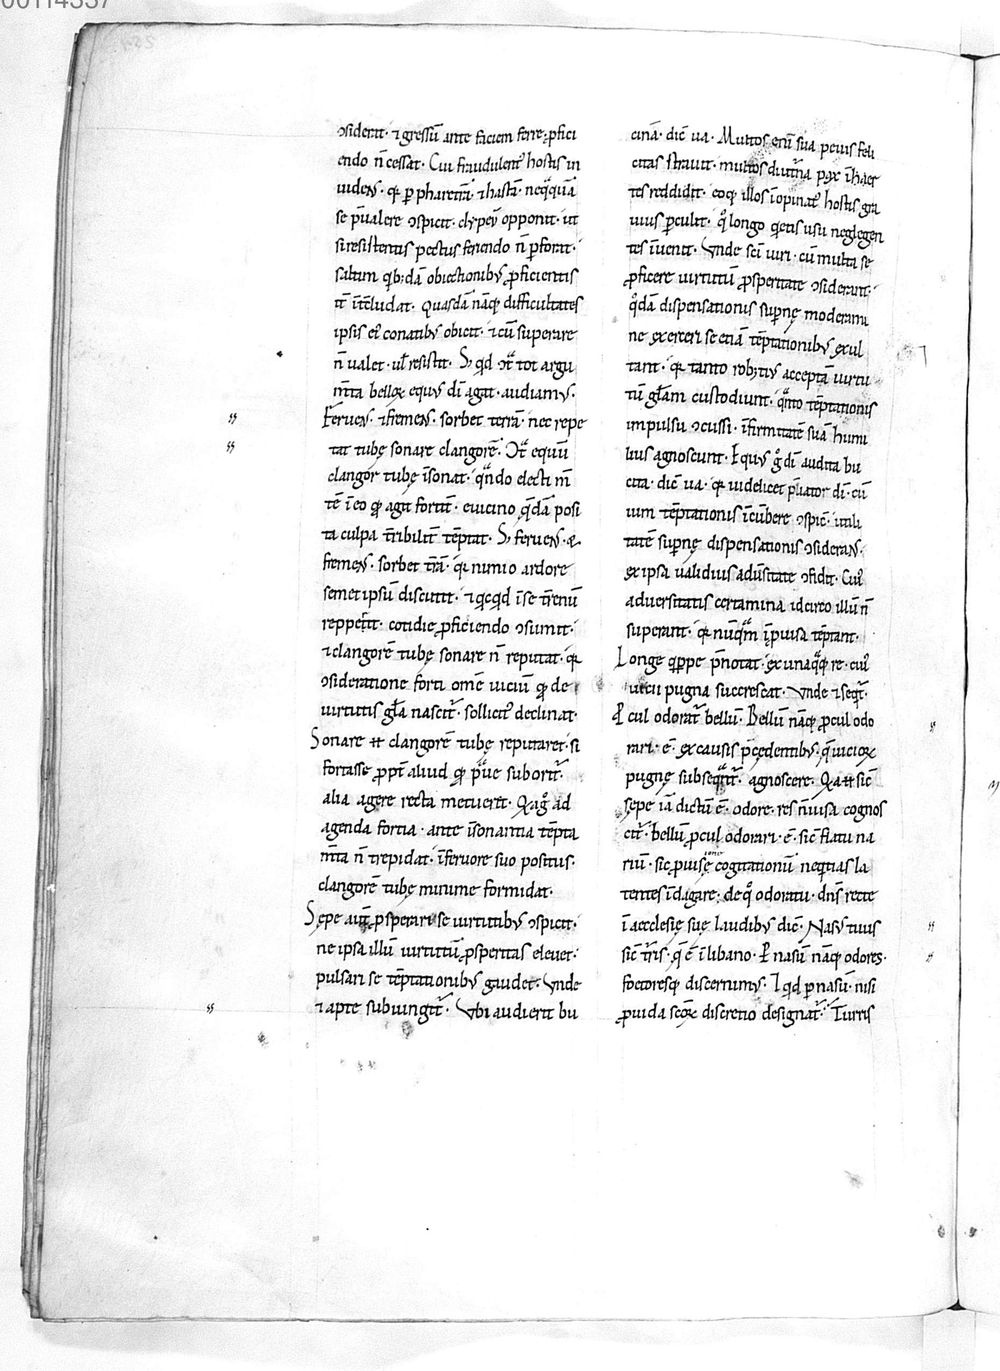 00114337
ꝯsiderit· ⁊ gressū ante faciem ferre· ꝓfici
endo n̄ cessat· Cui fraudulent̾ hostis in
uidens· qͥ ꝑ pharetrā· ⁊ hastā· neqͣquā
se p̄ualere ꝯspicit· clypeū opponit· ut
si resistentis pectus feriendo n̄ ꝑforat·
saltim qb;dā obiectionibꝰ ꝓficientis
it̄ īt̄cludat· Quasdā nāq; difficultates
ipsis eiꝰ conatibꝰ obicit· ⁊ cū superare
n̄ ualet· ul̄ resistit· S; qd ꝯͣ tot argu
m̄ta belloꝝ equus dī agat· audiamꝰ·
Feruens· ⁊ fremens· sorbet terrā· nec repu
tat tubę sonare clangorē· Ꝯͣ equū
clangor tubę īsonat· qn̄do electi m̄
tē ī eo qd agit fortit̄· e uicino qdā posi
ta culpa t̄ribilit̄ tēptat· S; feruens· &
fremens· sorbet t̄rā· qͥ nimio ardore
semet ipsū discutit· ⁊ qcqd ī se t̄renū
repperit· cotidie ꝓficiendo ꝯsumit·
⁊ clangorē tubę sonare n̄ reputat· qͥ
ꝯsideratione forti om̄e uiciū qd de
uirtutis gl̄a nascit̄· sollicite declinat·
Sonare .n. clangorē tubę reputaret· si
fortasse ꝓpt̄ aliud qd praue suborit̄·
alia agere recta metueret· Qͥa gͦ ad
agenda fortia· ante īsonantia tēpta
m̄ta n̄ trepidat· ī feruore suo positus·
clangorē tubę minime formidat·
Sepe aut̄ ꝓsperari se uirtutibꝰ ꝯspicit·
ne ipsa illū uirtutū ꝓsperitas eleuet·
pulsari se tēptationibꝰ gaudet· Unde
⁊ apte subiungit̄· Ubi audierit bu
cinā· dic̄ ua· Multos enī sua peius feli
citas strauit· multos diut̾na pax īhaer
tes reddidit· eoq; illos īopinat̾ hostis gra
uius ꝑculit· qͦ longo qͥetis usu neglegen
tes īuenit· Unde sc̄i uiri· cū multa se
ꝓficere uirtutū ꝓsperitate ꝯsiderant·
qͦdā dispensationis supnę moderami
ne exerceri se etiā tēptationibꝰ exul
tant· qͥ tanto robustiꝰ acceptā uirtu
tū gl̄am custodiunt· qn̄to tēptationis
impulsu ꝯcussi· īfirmitatē suā humi
lius agnoscunt· Equꝰ gͦ dī audita bu
cita· dic̄ ua· qͥ uidelicet p̄liator dī· cū
uim tēptationis īcūbere ꝯspic̄· utili
tatē supnę dispensationis ꝯsiderans·
ex ipsa ualidius adūsitate ꝯfidit· Cuiꝰ
aduersitatis certamina idcirco illū n̄
superant· qͥ nūqͣm īprouisa tēptant·
Longe qͥppe p̄notat· ex unaqͣq; re· cuiꝰ
uicii pugna succrescat· Unde ⁊ seqt̄·
Procul odorat̄ bellū· Bellū nāq; ꝓcul odo
rari· ē· ex causis p̄cedentibꝰ· qͣ uicioꝝ
pugnę subseqͣt̄· agnoscere· Qͥa .n. sic̄
sepe iā dictū ē· odore· res n̄ uisa cognos
cit̄· bellū ꝓcul odorari· ē· sic̄ flatu na
riū· sic ꝓuisione cogitationū neqͥtias la
tentes īdagare· de qͦ odoratu· dn̄s recte
ī aecclesię suę laudibꝰ dic̄· Nasus tuus
sic̄ t̄ris· qͣ ē ī libano· Per nasū nāq; odores·
foetoresq; discernimꝰ· ⁊ qd per nasū· nisi
ꝓuida sc̄oꝝ discretio designat̄· Turris